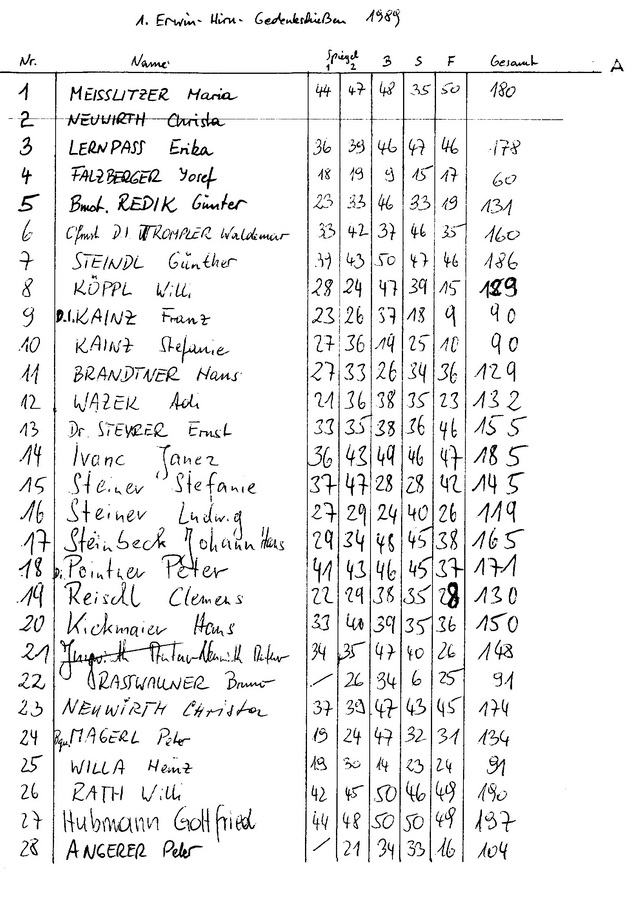 1. Erwin-Hirn-Gedenkschießen 1989
Nr. Name Spiegel 1 2 B S F Gesamt A
1 MEISSLITZER Maria 44 47 48 35 50 180
2 NEUWIRTH Christa
3 LERNPASS Erika 36 39 46 47 46 178
4 FALZBERGER Josef 18 19 9 15 17 60
5 Bmst. REDIK Günter 23 33 46 33 19 131
6 DI TROMPLER Waldemar 33 42 37 46 35 160
7 STEINDL Günther 39 43 50 47 46 186
8 KÖPPL Willi 28 24 47 39 15 129
9 D.I. KAINZ Franz 23 26 37 18 9 90
10 KAINZ Stefanie 27 36 19 25 10 90
11 BRANDTNER Hans 27 33 26 34 36 129
12 WAZEK Adi 21 36 38 35 23 132
13 Dr. STEYRER Ernst 33 35 38 36 46 155
14 Ivanc Janez 36 43 49 46 47 185
15 Steiner Stefanie 37 47 28 28 42 145
16 Steiner Ludwig 27 29 24 40 26 119
17 Steinbeck Johann Hans 29 34 48 45 38 165
18 Di. Pointner Peter 41 43 46 45 37 171
19 Reischl Clemens 22 29 38 35 28 130
20 Kickmaier Hans 33 40 39 35 36 150
21 34 35 47 40 26 148
22 GRASSWALLNER Bruno / 26 34 6 25 91
23 NEUWIRTH Christa 37 39 47 43 45 174
24 MAGERL Peter 19 24 47 32 31 134
25 WILLA Heinz 19 30 14 23 24 91
26 RATH Willi 42 45 50 46 49 190
27 Hubmann Gottfried 44 48 50 50 49 197
28 ANGERER Peter / 21 34 33 16 104